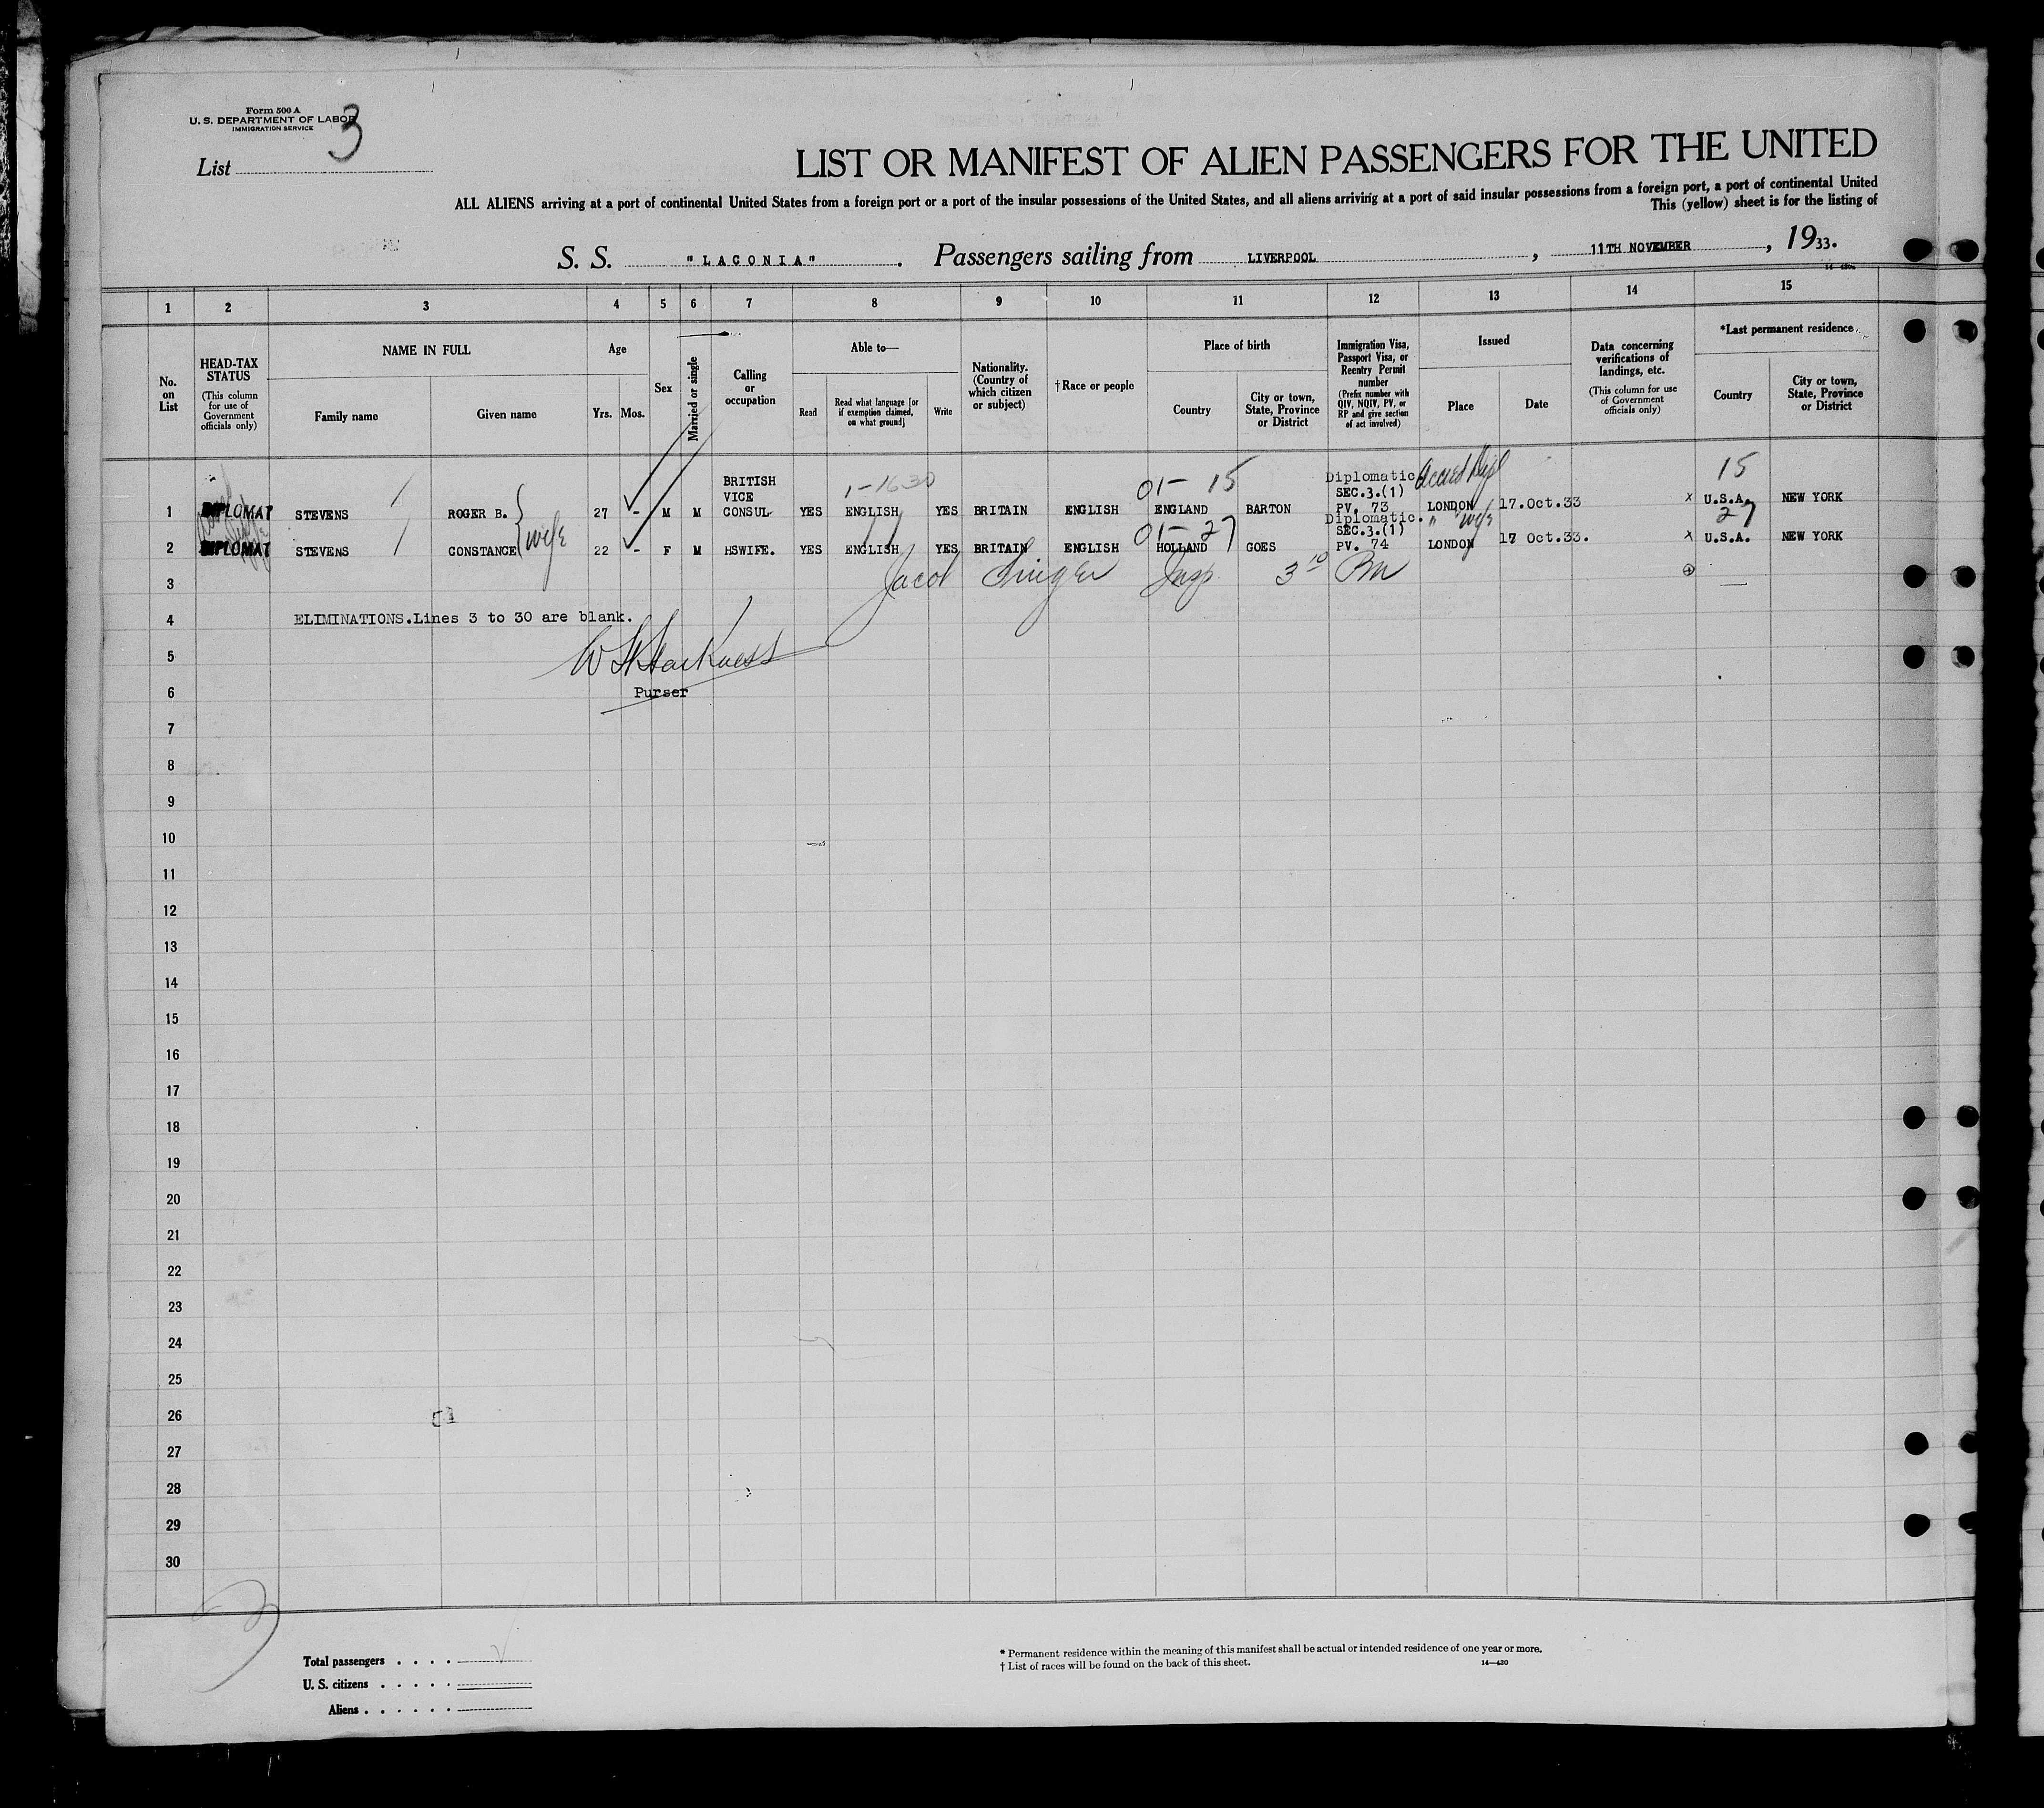 Form 500 A
U. S. DEPARTMENT OF LABOR
IMMIGRATION SERVICE
3
List
LIST OR MANIFEST OF ALIEN PASSENGERS FOR THE UNITED
ALL ALIENS arriving at a port of continental United States from a foreign port or a port of the insular possessions of the United States, and all aliens arriving at a port of said insular possessions from a foreign port, a port of continental United
This (yellow) sheet is for the listing of
S. S. "LACONIA". Passengers sailing from LIVERPOOL, 11TH NOVEMBER, 1933.
1 2 3 4 5 6 7 8 9 10 11 12 13 14 15
No. on List
HEAD-TAX STATUS (This column for use of Government officials only)
NAME IN FULL
Family name
Given name
Age
Yrs. Mos.
Sex
Married or single
Calling or occupation
Able to—
Read
Read what language [or if exemption claimed, on what ground]
Write
Nationality. (Country of which citizen or subject)
†Race or people
Place of birth
Country
City or town, State, Province or District
Immigration Visa, Passport Visa, or Reentry Permit number (Prefix number with QIV, NQIV, PV, or RP and give section of act involved)
Issued
Place
Date
Data concerning verifications of landings, etc. (This column for use of Government officials only)
*Last permanent residence
Country
City or town, State, Province or District
1-1630 01- 15 15
1 DIPLOMAT STEVENS ROGER B. 27 - M M BRITISH VICE CONSUL YES ENGLISH YES BRITAIN ENGLISH ENGLAND BARTON Diplomatic SEC.3.(1) PV. 73 LONDON 17.Oct.33 x U.S.A. NEW YORK
wife 01- 27 " wife 27
2 DIPLOMAT STEVENS CONSTANCE 22 - F M HSWIFE. YES ENGLISH YES BRITAIN ENGLISH HOLLAND GOES Diplomatic. SEC.3.(1) PV. 74 LONDON 17 Oct.33. x U.S.A. NEW YORK
3 Jacob Singer Insp. 3 10 Pm
4 ELIMINATIONS.Lines 3 to 30 are blank.
5
6 Purser
7
8
9
10
11
12
13
14
15
16
17
18
19
20
21
22
23
24
25
26
27
28
29
30
Total passengers
U. S. citizens
Aliens
* Permanent residence within the meaning of this manifest shall be actual or intended residence of one year or more.
† List of races will be found on the back of this sheet.
14—430